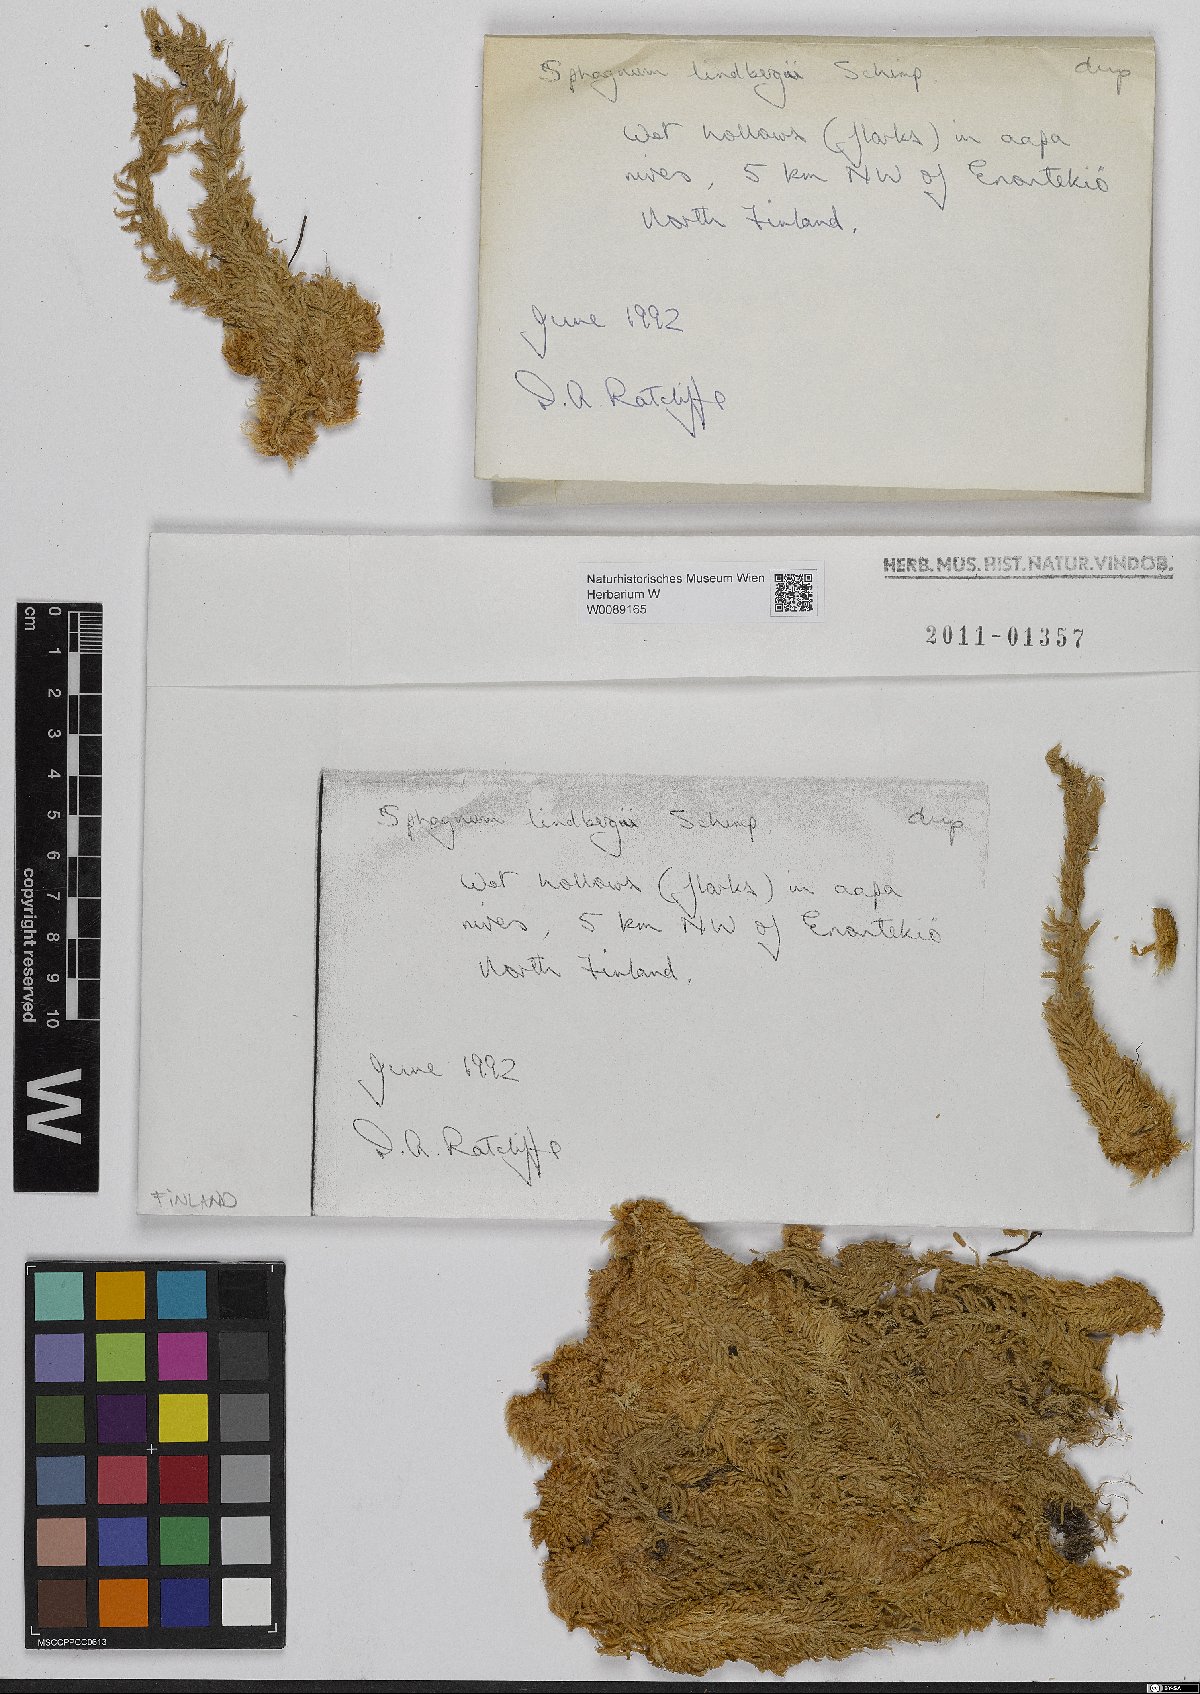 Sphagnum lindbergii Schimp dup
Wet hollows (flarks) in aapa
mires, 5 km NW of Enontekiö
North Finland.
June 1992
D.A. Ratcliffe
Naturhistorisches Museum Wien
Herbarium W
W0089165
HERB. MUS. HIST. NATUR. VINDOB.
2011-01357
Sphagnum lindbergii Schimp dup
Wet hollows (flarks) in aapa
mires, 5 km NW of Enontekiö
North Finland.
June 1992
D.A. Ratcliffe
FINLAND
cm
0
1
2
3
4
5
6
7
8
9
10
copyright reserved
W
MSCCPPCC0613
BY-SA